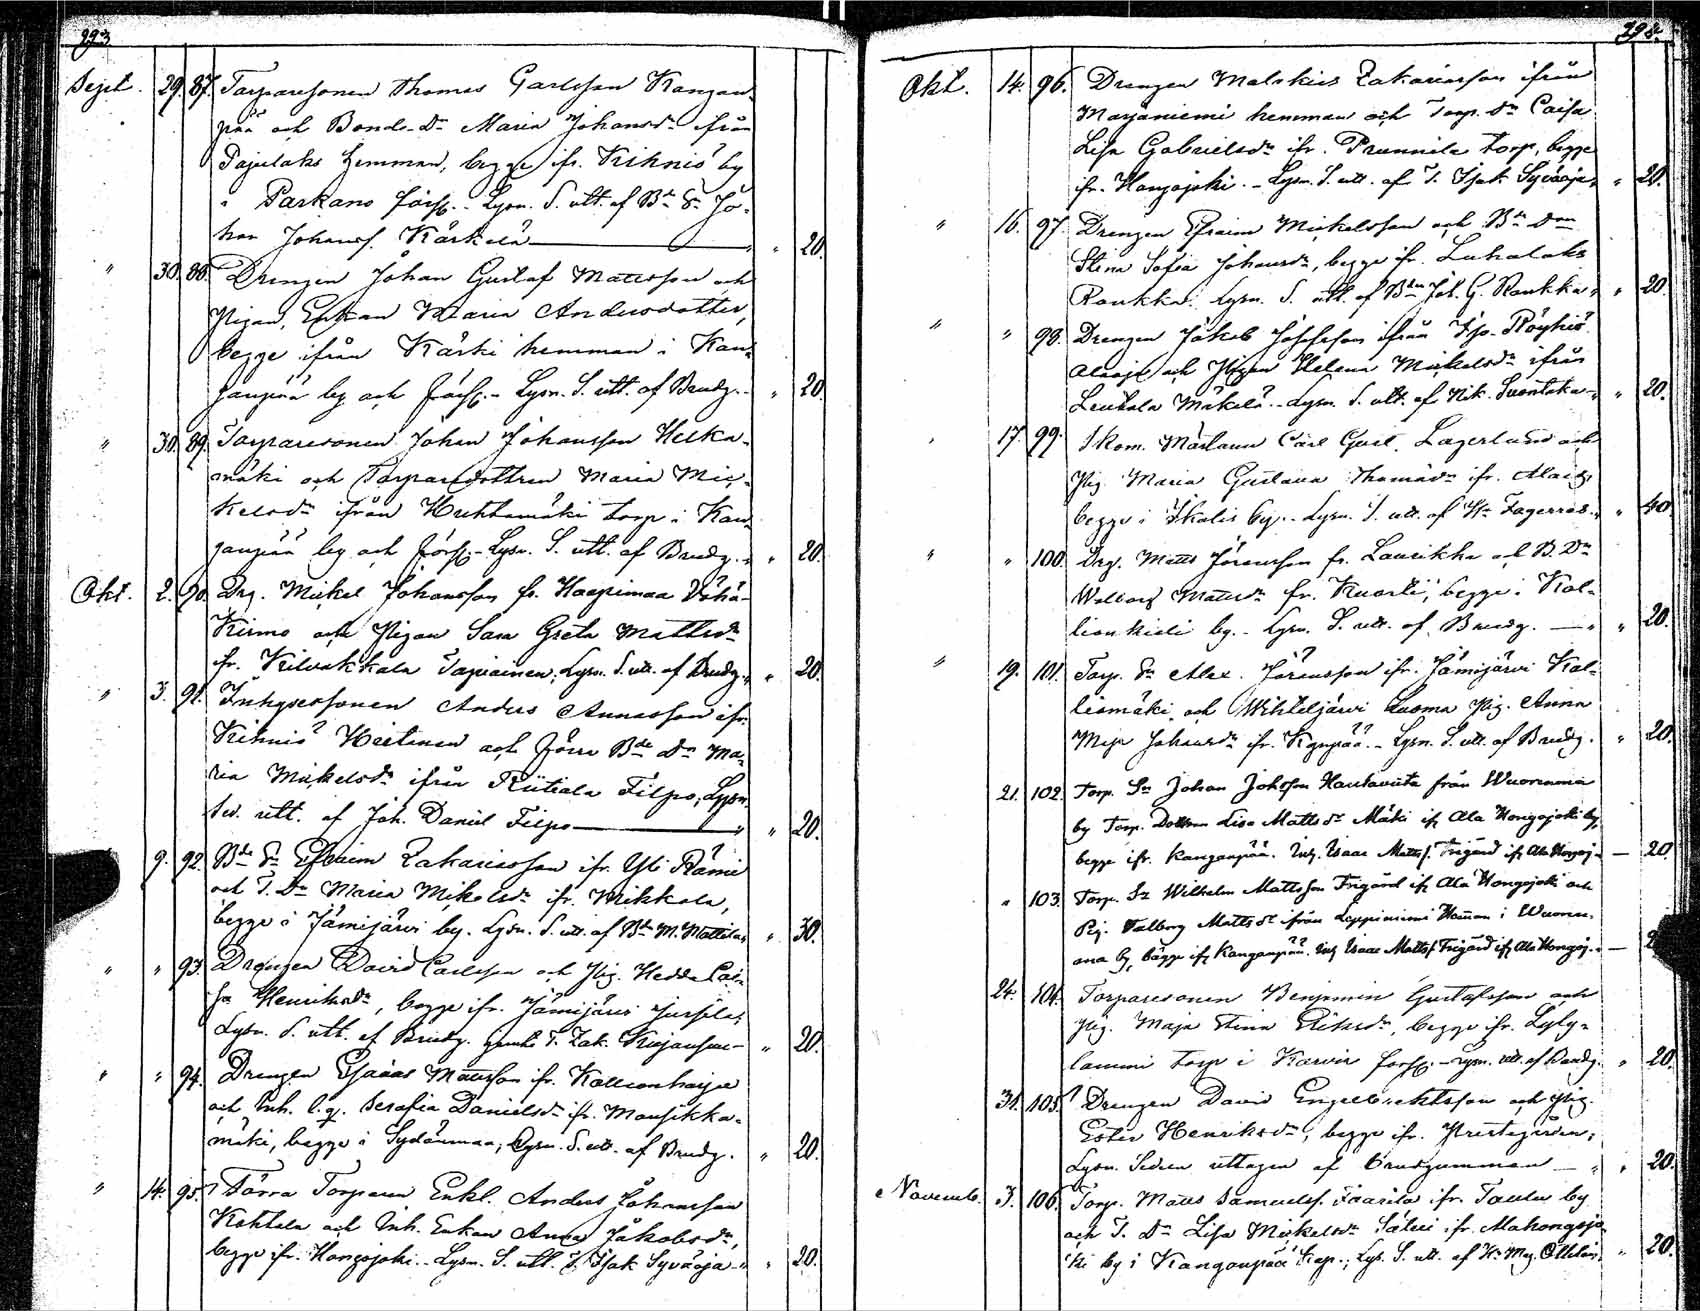 223
Sept. 29. 87. Torparesonen Thomas Carlsson Kangan-
pää och Bonde Dr Maria Johansdr ifrån
Pajulaks hemman, begge ifr. Kihniö by
i Parkano förs. Lysn. S. utt. af Bde Sn Jo-
han Johanss. Kärkelä " " 20.
" 30. 88. Drengen Johan Gustaf Mattsson och
Pigan, Enkan Maria Andersdotter,
begge ifrån Kärki hemman i Kan-
ganpää by och förs. - Lysn. S. utt. af Brudg. - " 20.
" 30. 89. Torparesonen Johan Johansson Helka-
mäki och Torparedottren Maria Mic-
kelsdr ifrån Huhtamäki torp i Kan-
ganpää by och förs. - Lysn. S. utt. af Brudg. " " 20.
Okt. 2. 90. Drg. Mickel Johansson fr. Haapimaa Vähä-
Kirmo och Pigan Sara Greta Mattsdr
fr. Kilvakkala Tapiainen, Lysn. S. utt. af Brudg. " " 20.
" 3. 91. Inhysessonen Anders Annasson ifr.
Kihniö och förre Bde Dn Ma-
ria Mickelsdr ifrån Riitiala Filpo, Lysn.
Sed. utt. af Joh. Daniel Filpo " " 20.
9. 92. Bde Sn Efraim Zakariasson ifr. Yli Rämi
och T. Dn Maria Mikelsdr ifr. Mikkola,
begge i Jämijärvi by. Lysn. S. utt. af Bde M. Mattila " 30.
" " 93. Drengen David Carlsson och Pig. Hedda Cai-
sa Henriksdr, begge ifr. Jämijärvi
Lysn. S. utt. af Brudg. T. Zak. - " 20.
" " 94. Drengen Esaias Mattsson ifr.
och Inh. Serafia Danielsdr ifr. Mansikka-
mäki, begge i Sydänmaa, Lysn. S. utt. af Brudg. " 20.
" 14. 95. Förra Torparen Enkl. Anders Johansson
Kohtala och Inh. Enkan Anna Jakobsdr,
begge ifr. Hongojoki. - Lysn. S. utt. T. Isak Syväoja " " 20.
Okt. 14. 96. Drengen Malakias Zakariasson ifrån
Marjaniemi hemman och Torp. Dr Caisa
Lisa Gabrielsdr ifr. Prunnila torp, begge
fr. Hongojoki. - Lysn. S. utt. af T. Isak Syväoja " 20.
" 16. 97. Drengen Efraim Mickelsson och Bde Don
Stina Sofia Johansdr, begge ifr. Luhalaks
Raukka. Lysn. S. utt. af Bden Joh. G. Raukka " " 20.
" " 98. Drengen Jakob Josefsson ifrån Röyhiö
Alaoja och Pigan Helena Mickelsdr ifrån
Leutola Mäkelä. - Lysn. S. utt. af Nik. " 20.
" 17. 99. Skom. Mästaren Carl Gust. Lagerlund och
Pig. Maria Gustava Thomasdr ifr.
begge i Ikalis by. - Lysn. S. utt. af Hr Fagerroos " 40.
" " 100. Drg. Matts Göransson fr. Laurikka och B. Dr
Walborg Mattsdr fr. Kuusti, begge i Kal-
lionkieli by. - Lysn. S. utt. af Brudg. — " " 20.
" 19. 101. Torp. Sn Alex. Göransson ifr. Jämijärvi Kal-
liomäki och Wihteljärvi Luoma Pig. Anna
Maja Johansdr ifr. Kgnpää. - Lysn. S. utt. af Brudg. " 20.
21. 102. Torp. Sn Johan Johsson Hautaviita från Wuorenmaa
by Torp. Dottren Lisa Mattsdr Mäki ifr Ala Hongojoki by,
begge ifr. Kangonpää. Utt. Isaac Mattss. Frigård ifr Ala Hongoj. — 20.
" 103. Torp. Sn Wilhelm Mattsson Frigård ifr Ala Hongojoki och
Pig. Valborg Mattsdr ifrån Leppiniemi Heman i Wuoren-
maa by, bägge ifr Kangonpää. Utt Isaac Mattss. Frigård ifr Ala Hongoj. — 2
24. 104. Torparesonen Benjamin Gustafsson och
Pig. Maja Stina Eriksdr, begge ifr. Lyly-
lammi torp i Karvia förs. - Lysn. utt. af Brudg. " 20.
31. 105. Drengen David Engelbrektsson och Pig.
Ester Henriksdr, begge ifr. Prestegården;
Lysn. Sedlen uttagen af Brudgumman — " " 20.
Novemb. 3. 106. Torp. Matts Samuelss. ifr. by
och T. Dr Lisa Mickelsdr ifr. Alahongojo-
ki by i Kangonpää Kap.; Lys. S. utt. af " 20.